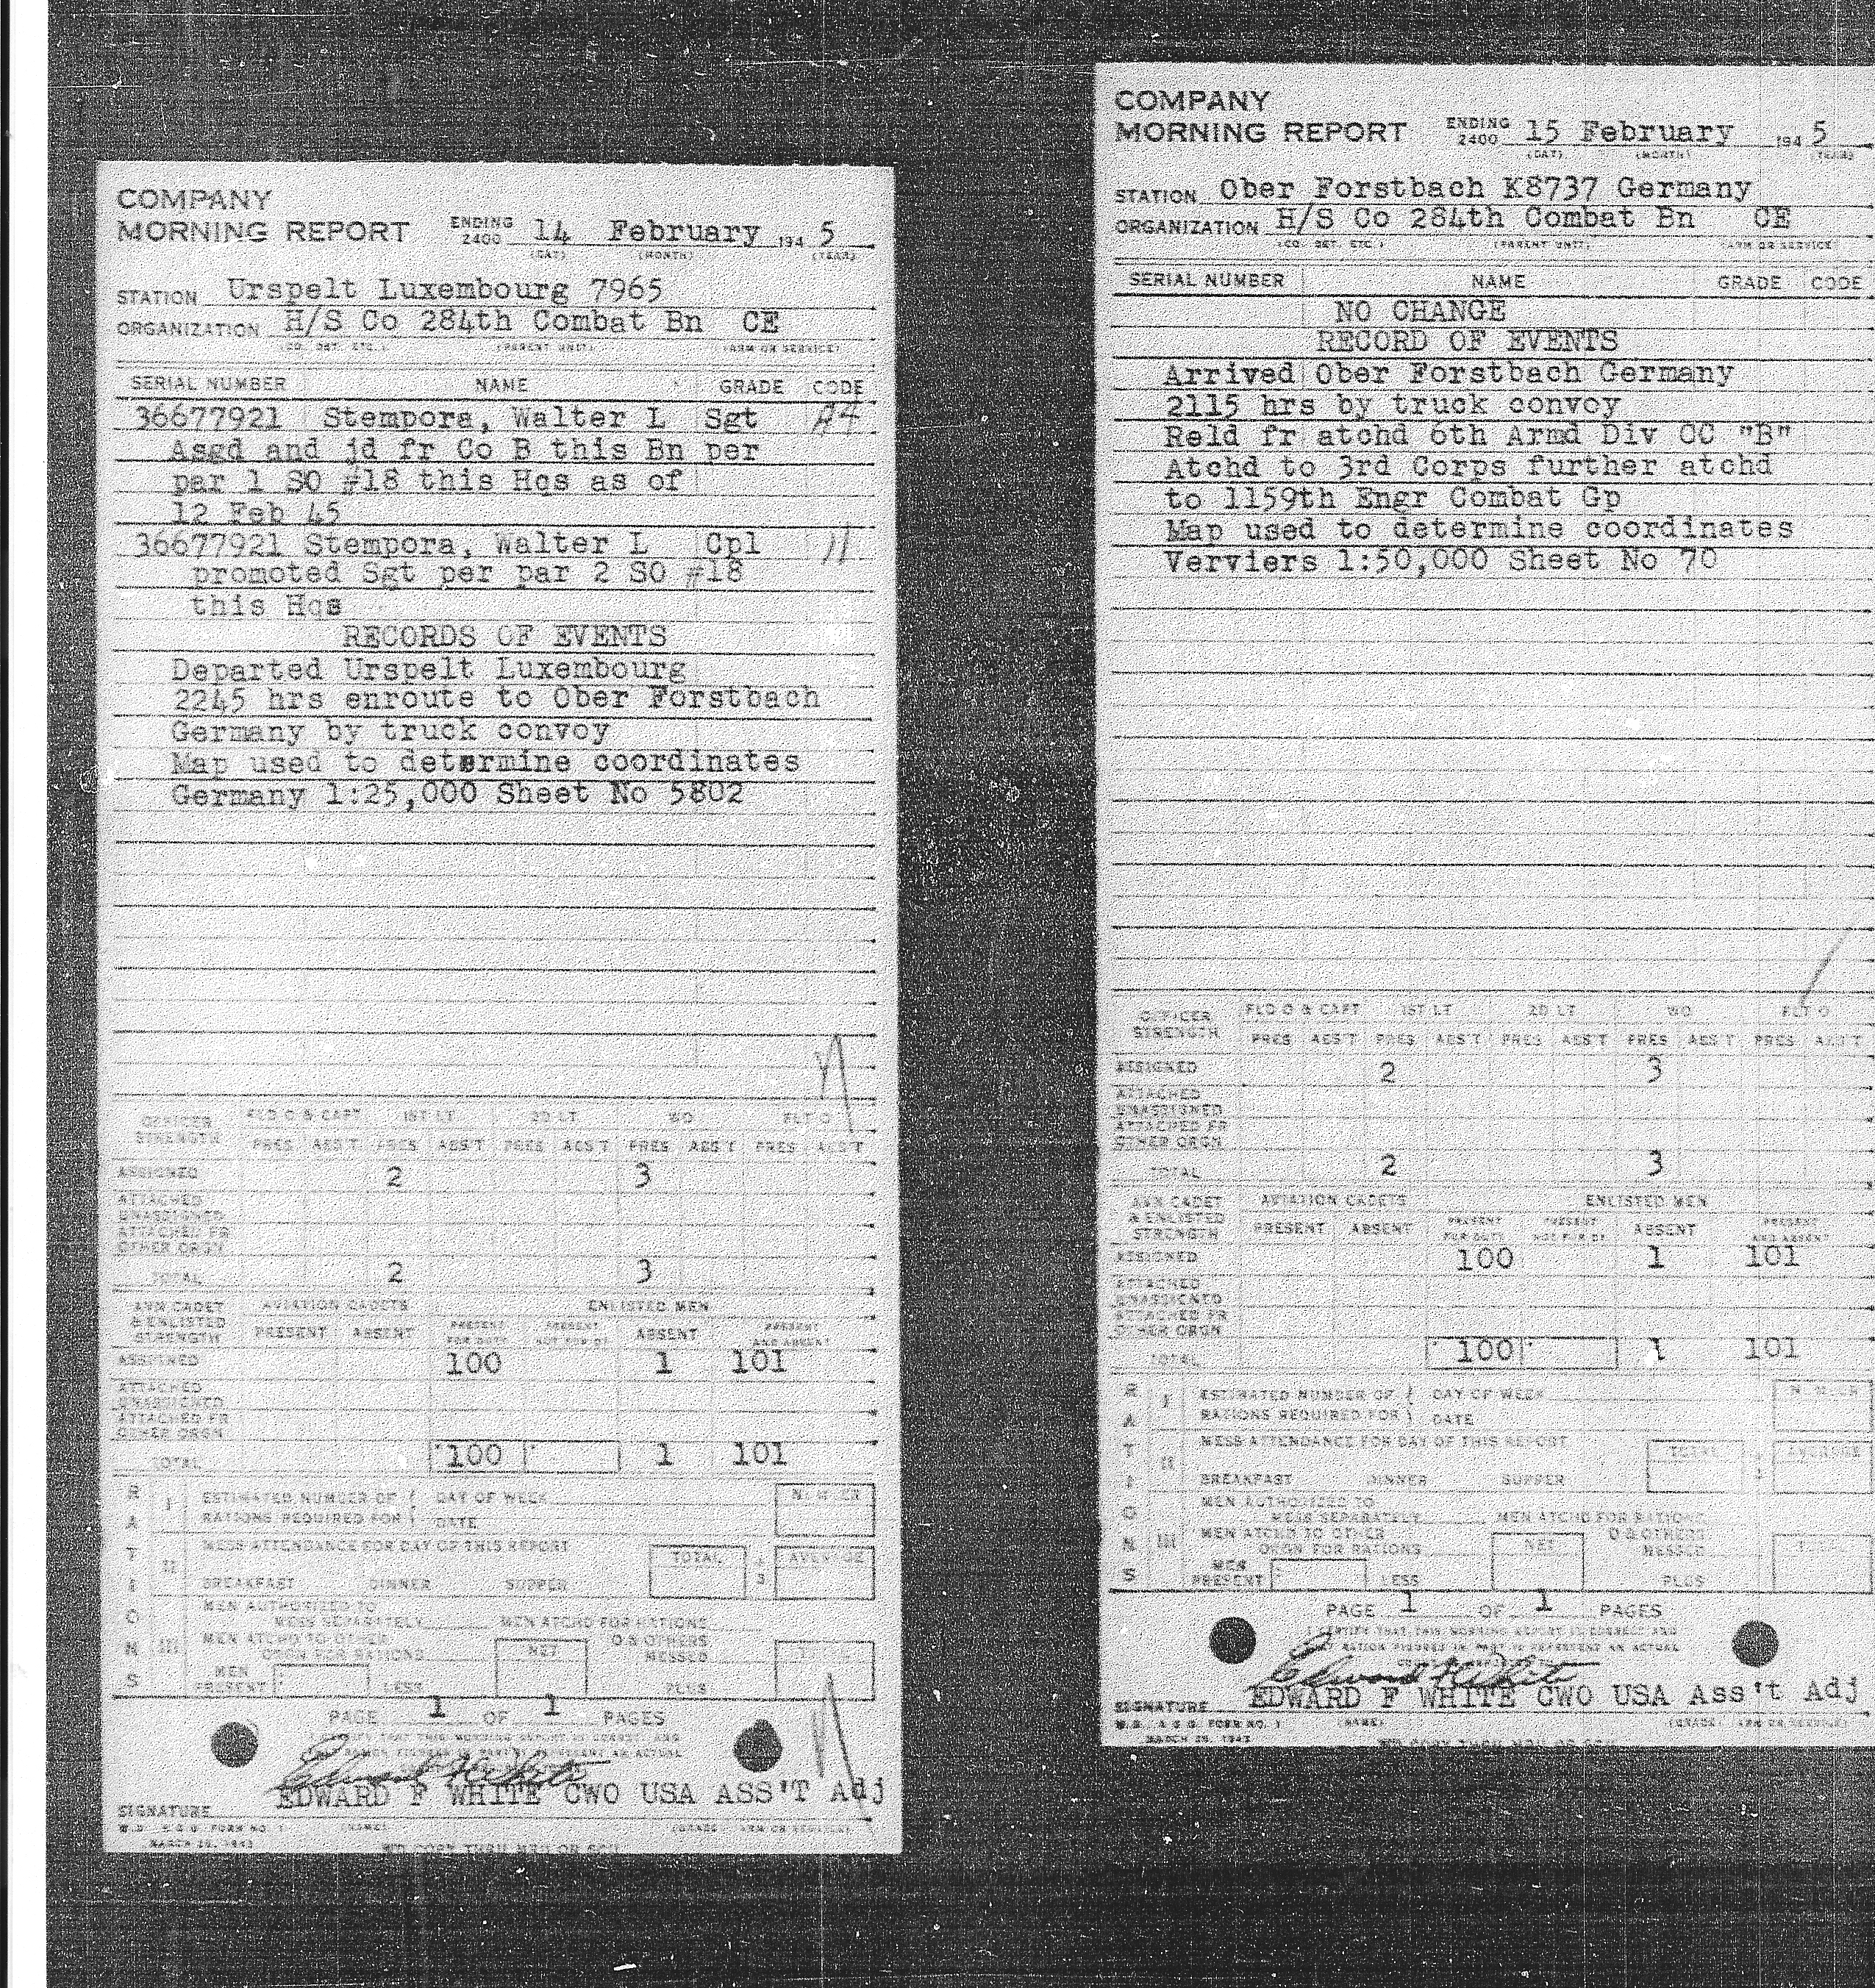 COMPANY
MORNING REPORT ENDING 2400 14 February 194 5
(DAY) (MONTH) (YEAR)
STATION Urspelt Luxembourg 7965
ORGANIZATION H/S Co 284th Combat Bn CE
(CO. DET. ETC.) (PARENT UNIT) (ARM OR SERVICE)
SERIAL NUMBER NAME GRADE CODE
36677921 Stempora, Walter L Sgt
Asgd and jd fr Co B this Bn per
par 1 SO #18 this Hqs as of
12 Feb 45
36677921 Stempora, Walter L Cpl 11
promoted Sgt per par 2 SO #18
this Hqs
RECORDS OF EVENTS
Departed Urspelt Luxembourg
2245 hrs enroute to Ober Forstbach
Germany by truck convoy
Map used to determine coordinates
Germany 1:25,000 Sheet No 5802
OFFICER STRENGTH FLD O & CAPT 1ST LT 2D LT WO FLT O
PRES ABS'T PRES ABS'T PRES ABS'T PRES ABS'T PRES ABS'T
ASSIGNED 2 3
ATTACHED UNASSIGNED
ATTACHED FR OTHER ORGN
TOTAL 2 3
AVN CADET & ENLISTED STRENGTH AVIATION CADETS ENLISTED MEN
PRESENT ABSENT PRESENT FOR DUTY PRESENT NOT FOR DY ABSENT PRESENT AND ABSENT
ASSIGNED 100 1 101
ATTACHED UNASSIGNED
ATTACHED FR OTHER ORGN
TOTAL 100 1 101
RATIONS
I ESTIMATED NUMBER OF DAY OF WEEK NUMBER
RATIONS REQUIRED FOR DATE
II MESS ATTENDANCE FOR DAY OF THIS REPORT TOTAL ÷ 3 AVERAGE
BREAKFAST DINNER SUPPER
III MEN AUTHORIZED TO MESS SEPARATELY MEN ATCHD FOR RATIONS
MEN ATCHD TO OTHER ORGN FOR RATIONS NET O & OTHERS MESSED
MEN PRESENT LESS PLUS
PAGE 1 OF 1 PAGES
THAT THIS MORNING REPORT IS CORRECT, AND
RATION FIGURES IN PART III REPRESENT AN ACTUAL
Edward F White
SIGNATURE EDWARD F WHITE CWO USA ASS'T Adj
W.D. A G O FORM NO. 1 (NAME) (GRADE ARM OR SERVICE)
MARCH 25, 1943
WD COPY THRU MRU OR SCU
COMPANY
MORNING REPORT ENDING 2400 15 February 194 5
(DAY) (MONTH) (YEAR)
STATION Ober Forstbach K8737 Germany
ORGANIZATION H/S Co 284th Combat Bn CE
(CO. DET. ETC.) (PARENT UNIT) (ARM OR SERVICE)
SERIAL NUMBER NAME GRADE CODE
NO CHANGE
RECORD OF EVENTS
Arrived Ober Forstbach Germany
2115 hrs by truck convoy
Reld fr atchd 6th Armd Div CC "B"
Atchd to 3rd Corps further atchd
to 1159th Engr Combat Gp
Map used to determine coordinates
Verviers 1:50,000 Sheet No 70
OFFICER STRENGTH FLD O & CAPT 1ST LT 2D LT WO FLT O
PRES ABS'T PRES ABS'T PRES ABS'T PRES ABS'T PRES ABS'T
ASSIGNED 2 3
ATTACHED UNASSIGNED
ATTACHED FR OTHER ORGN
TOTAL 2 3
AVN CADET & ENLISTED STRENGTH AVIATION CADETS ENLISTED MEN
PRESENT ABSENT PRESENT FOR DUTY PRESENT NOT FOR DY ABSENT PRESENT AND ABSENT
ASSIGNED 100 1 101
ATTACHED UNASSIGNED
ATTACHED FR OTHER ORGN
TOTAL 100 1 101
RATIONS
I ESTIMATED NUMBER OF DAY OF WEEK NUMBER
RATIONS REQUIRED FOR DATE
II MESS ATTENDANCE FOR DAY OF THIS REPORT TOTAL AVERAGE
BREAKFAST DINNER SUPPER
III MEN AUTHORIZED TO MESS SEPARATELY MEN ATCHD FOR RATIONS
MEN ATCHD TO OTHER ORGN FOR RATIONS NET O & OTHERS MESSED
MEN PRESENT LESS PLUS TOTAL
PAGE 1 OF 1 PAGES
I CERTIFY THAT THIS MORNING REPORT IS CORRECT AND
RATION FIGURES IN PART III REPRESENT AN ACTUAL
Edward F White
SIGNATURE EDWARD F WHITE CWO USA Ass't Adj
W.D. A G O FORM NO. 1 (NAME) (GRADE ARM OR SERVICE)
MARCH 25, 1943
WD COPY THRU MRU OR SCU